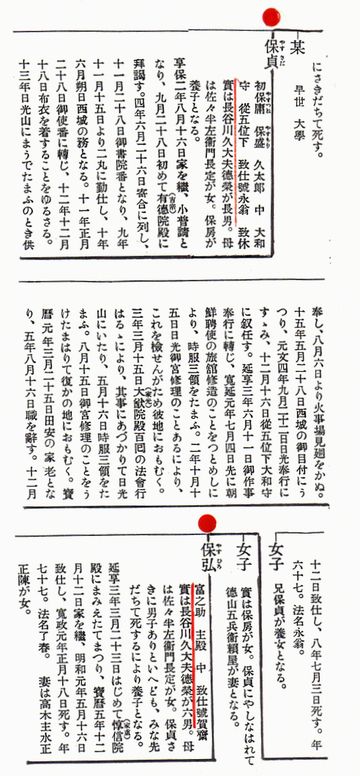 にさきだちて死す。
某
早世 大學
保貞
やすさだ
初保庸 保盛 久太郎 中 大和
やすつね やすもり
守 從五位下 致仕號永翁 致休
實は長谷川久大夫德榮が長男。母
は佐々半左衞門長定が女。保房が
養子となる。
享保二年八月十六日家を繼、小普請と
なり、九月二十八日初めて有德院殿に
(吉宗)
拜謁す。四年六月二十六日寄合に列し、
十一月二十八日御書院番となり、九年
十一月十五日より二丸に勤仕し、十年
六月朔日西城の務となる。十一年正月
二十八日御使番に轉じ、十二年十二月
十八日布衣を着することをゆるさる。
十三年日光山にまうでたまふのとき供
奉し、八月六日より火事場見廻をかぬ。
十五年五月二十八日西城の御目付にう
つり、元文四年九月二十二日日光奉行に
すゝみ、十二月十六日從五位下大和守
に叙任す。延享三年六月十一日御作事
奉行に轉じ、寬延元年七月四日先に朝
鮮聘使の旅館修造のことをつとめしに
より、時服三領をたまふ。二年十月十
五日日光御宮修理のことあるにより、
これを檢せんがため彼地におもむく。
三年三月十五日大猷院殿百囘の法會行
(家光)
はるゝにより、其事にあづかりて日光
山にいたり、五月十六日時服三領をた
まふ。八月十五日御宮修理のことをう
けたまはりて復かの地におもむく。寶
曆元年三月二十五日田安の家老とな
り、五年八月十六日職を辭す。十二月
十二日致仕し、八年七月三日死す。年
六十七。法名永翁。
女子
兄保貞が養女となる。
女子
實は保房が女。保貞にやしなはれて
德山五兵衞賴屋が妻となる。
保弘
やすひろ
富之助 主殿 中 致仕號賀齋
實は長谷川久大夫德榮が六男。母
は佐々半左衞門長定が女。保貞さ
きに男子ありといへども、みな先
だちて死するにより養子となる。
延享三年三月二十三日はじめて惇信院
(家重)
殿にまみえたてまつり、寶曆五年十二
月十二日家を繼、明和元年五月十六日
致仕し、寬政元年正月十八日死す。年
七十七。法名了春。 妻は高木主水正
正陳が女。